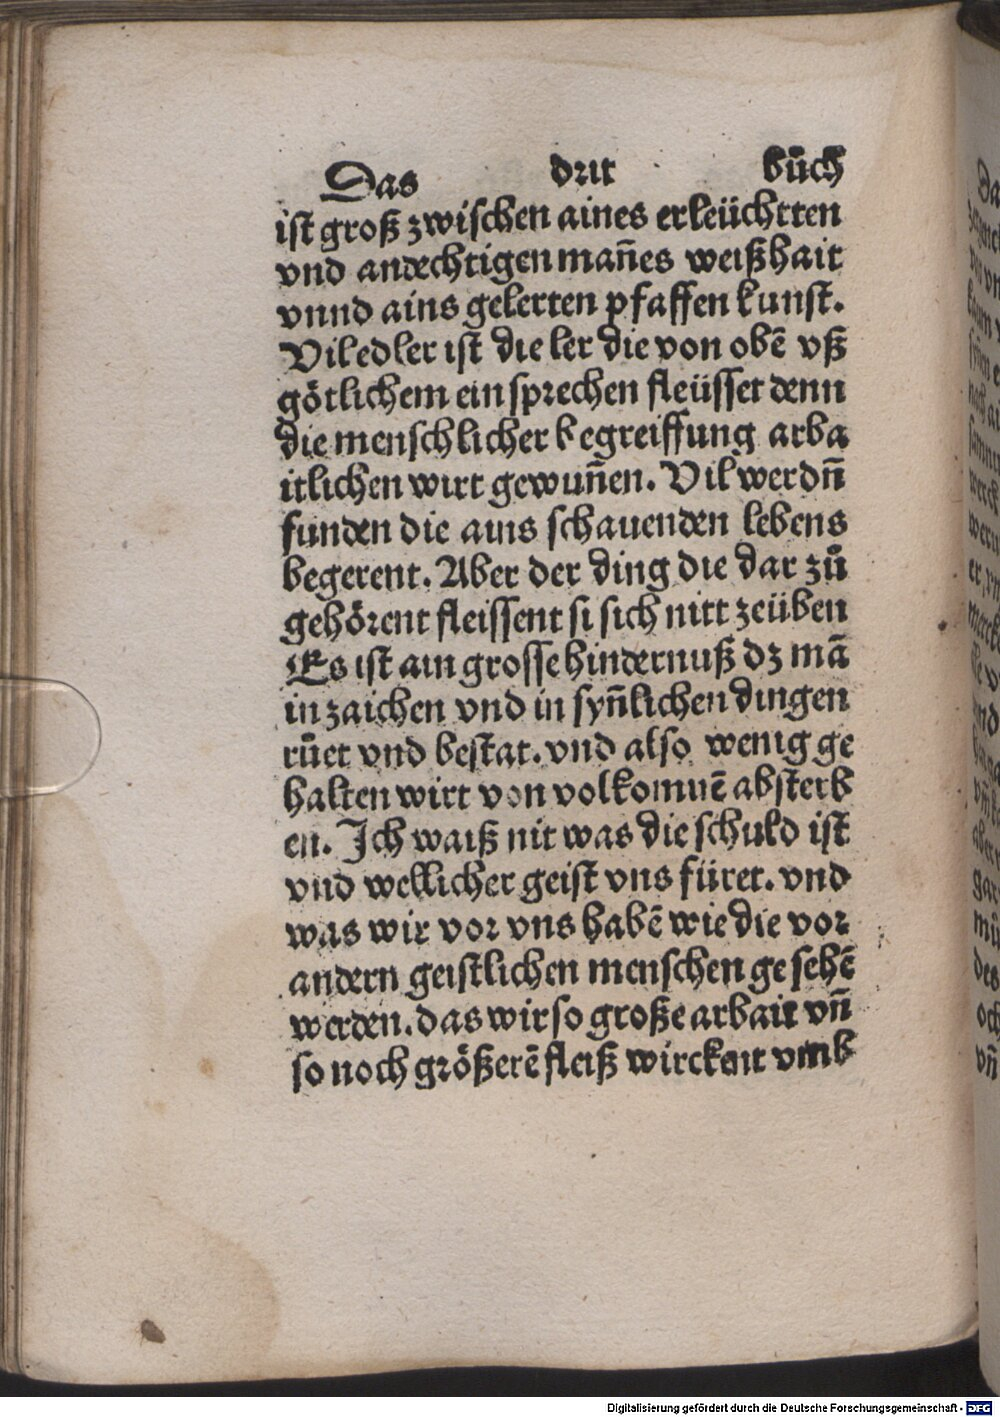 Das drit bůch
ist groß zwischen aines erleüchtten
vnd andechtigen mañes weißhait
vnnd ains gelerten pfaffen kunst.
Vil edler ist die ler die von obē vß
götlichem ein sprechen fleüsset denn
die menschlicher begreiffung arba
itlichen wirt gewuñen. Vil werdñ
funden die ains schauenden lebens
begerent. Aber der ding die dar zů
gehörent fleissent si sich nitt zeüben
Es ist ain grosse hindernuß dz mā
in zaichen vnd in syñlichen dingen
růet vnd bestat. vnd also wenig ge
halten wirt von volkomnē absterb
en. Ich waiß nit was die schuld ist
vnd wellicher geist vns füret. vnd
was wir vor vns habē wie die vor
andern geistlichen menschen gesehē
werden. das wir so große arbait vñ
so noch größerē fleiß wirckent vmb
Digitalisierung gefördert durch die Deutsche Forschungsgemeinschaft - DFG